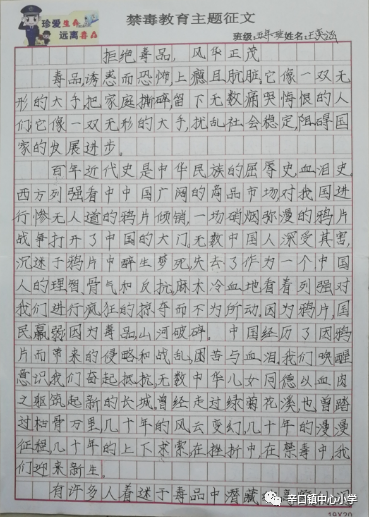 珍爱生命
远离毒品
禁毒教育主题征文
班级:五年班姓名:王
拒绝毒品,风华正茂
毒品,诱惑而恐怖,上瘾且肮脏,它像一双无
形的大手,把家庭撕碎,留下无数痛哭悔恨的人
们;它像一双无形的大手,扰乱社会稳定,阻碍国
家的发展进步。
百年近代史是中华民族的屈辱史,血泪史,
西方列强看中中国广阔的商品市场,对我国进
行惨无人道的鸦片倾销,一场硝烟弥漫的鸦片
战争打开了中国的大门,无数中国人深受其害,
沉迷于鸦片中醉生梦死,失去了作为一个中国
人的理智,骨气和反抗,麻木冷血地看着列强对
我们进行疯狂的掠夺而不为所动,因为鸦片,国
民羸弱,因为毒品,山河破碎。中国经历了因鸦
片而带来的侵略和战乱,困苦与血泪,我们唤醒
意识,我们奋起抵抗,无数中华儿女同德,以血肉
之躯筑起新的长城,曾经走过绿菊花溪,也曾踏
过枯骨万里,几十年的风云变幻,几十年的漫漫
征程,几十年的上下求索,在挫折中,在禁毒中,我
们迎来新生。
有许多人着迷于毒品中潜藏
辛口镇中心小学
19X20